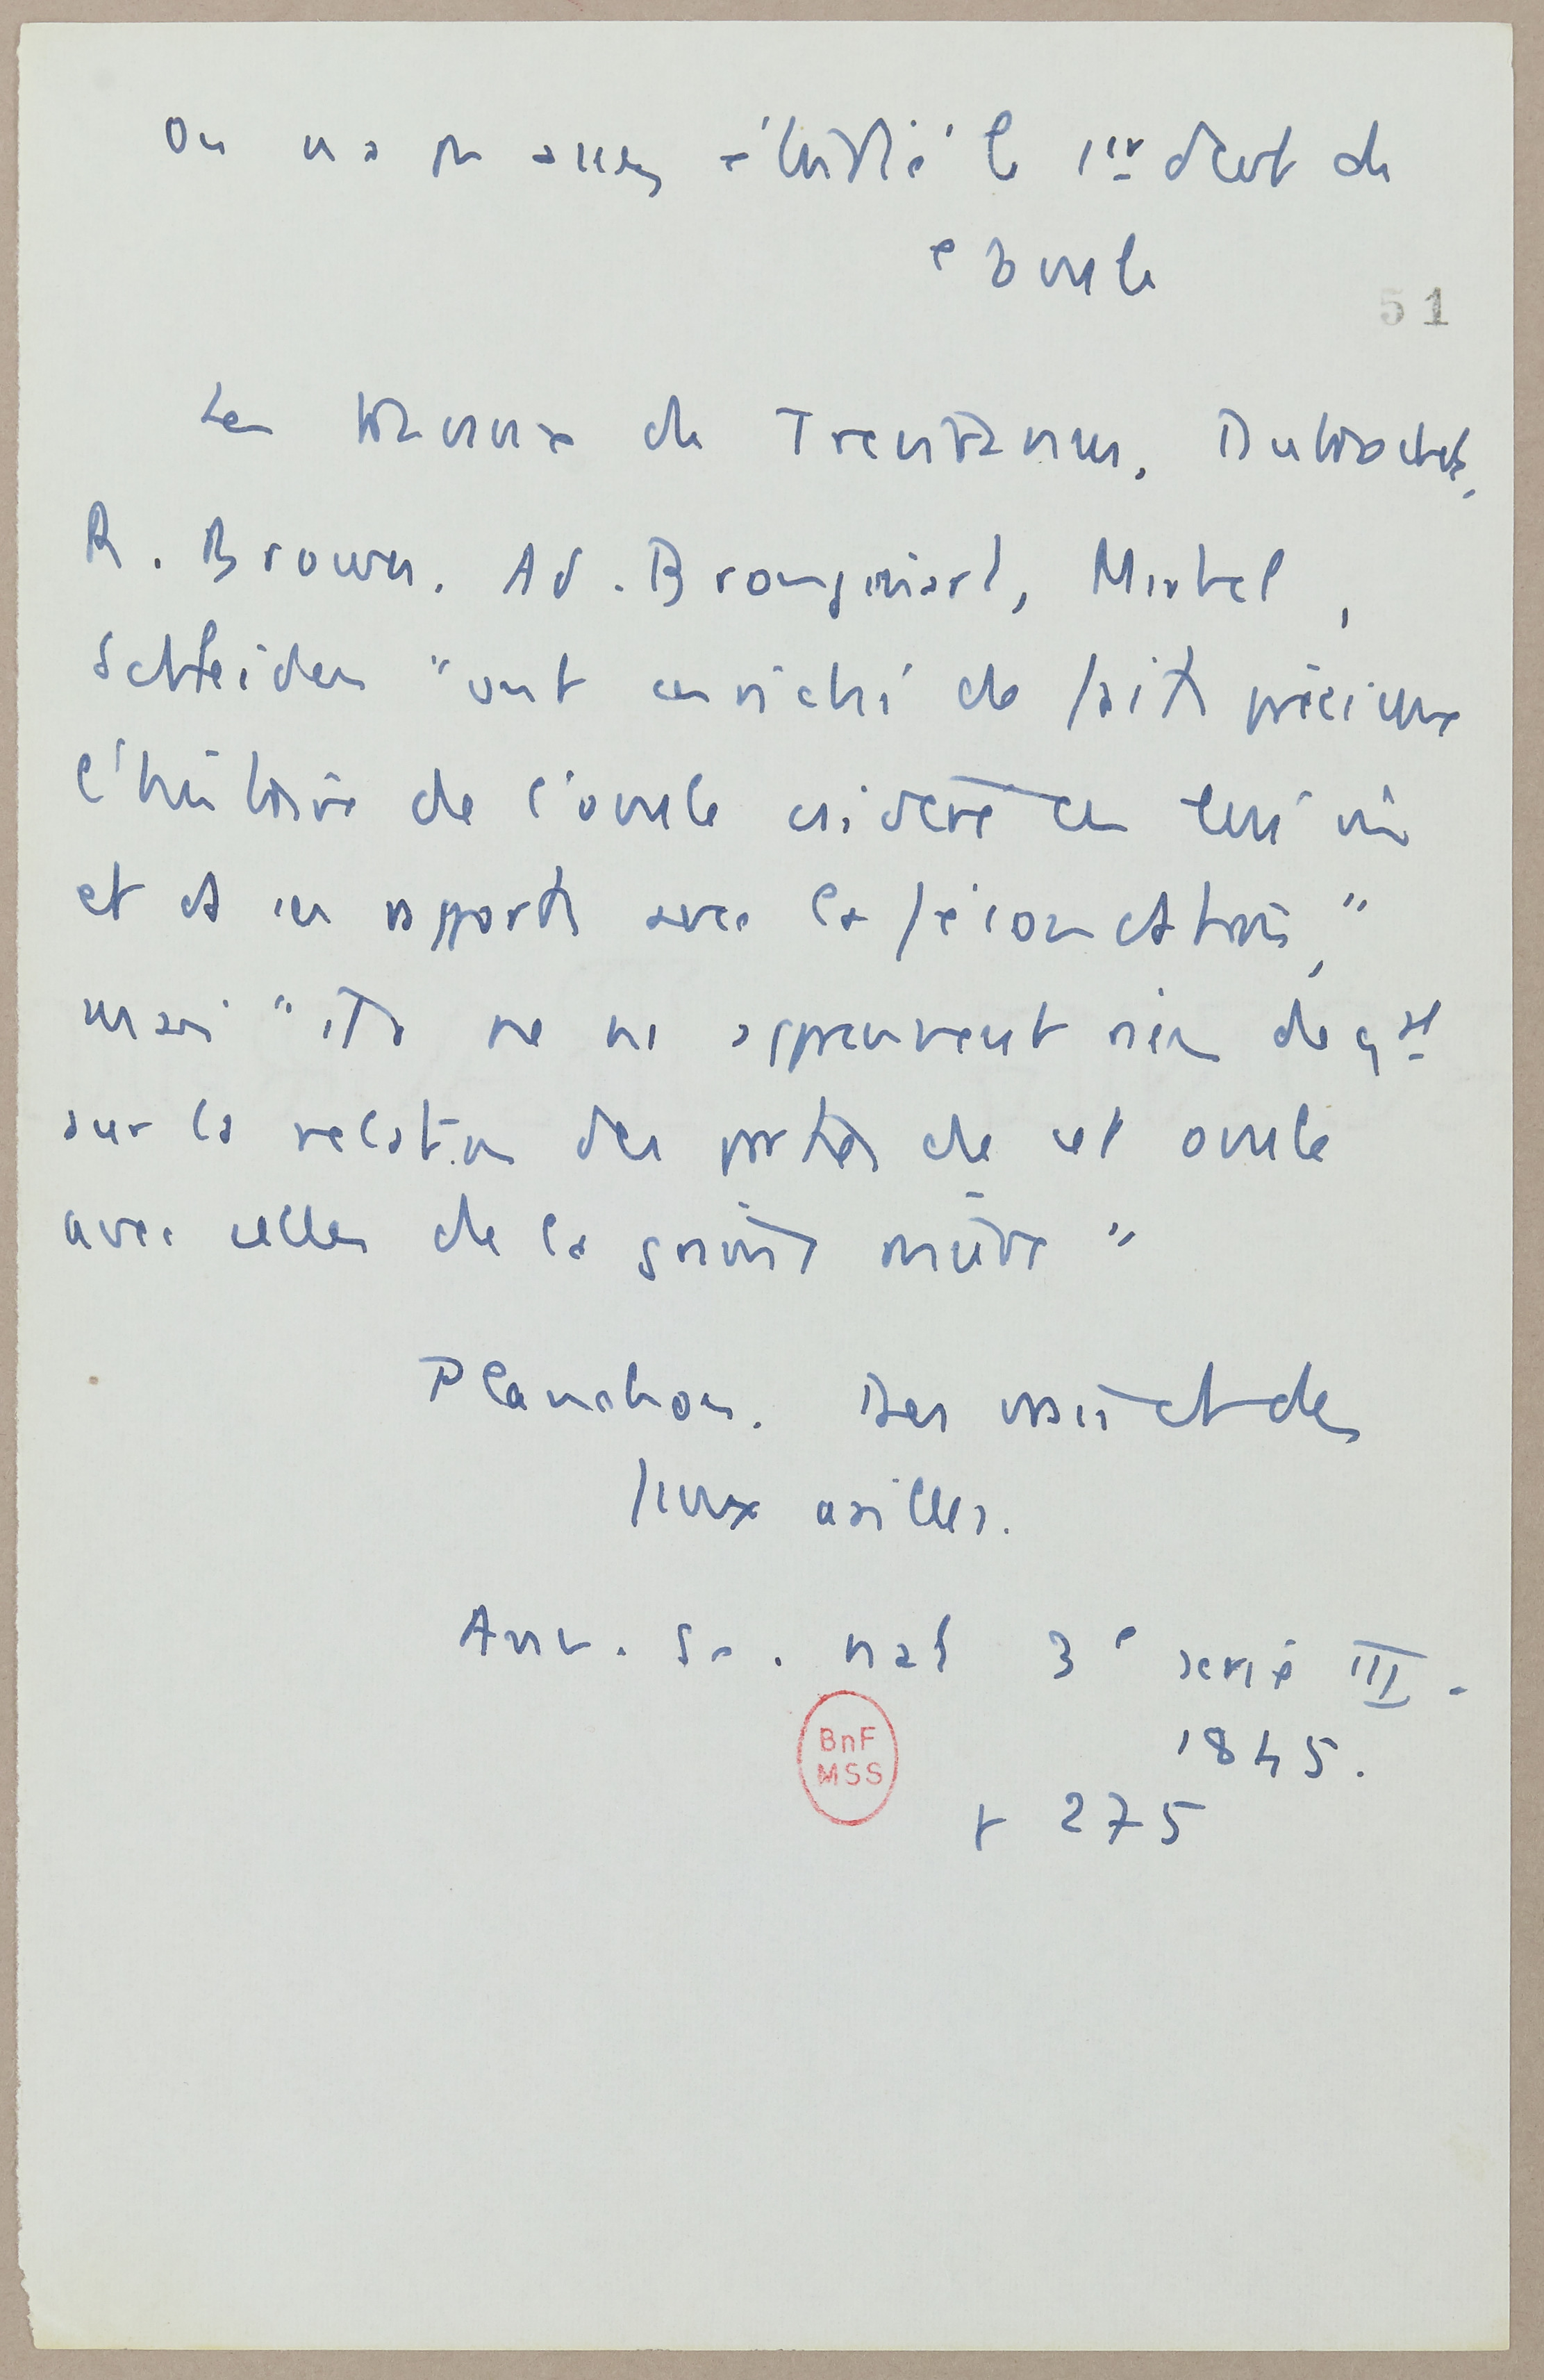 On n'a pas assez étudié le 1er début de
l'ovule
51
Les travaux de Treviranus, Dutrochet,
R. Brown. Ad. Brongniart, Mirbel,
Schleiden "ont enrichi de faits précieux
l'histoire de l'ovule considéré en lui-même
et ds ses rapports avec la fécondation,"
mais "ils ne ns apprennent rien de gal
sur la relation des parties de cet ovule
avec celles de la graine mûre"
Planchon. Des vrais et des
faux arilles.
Ann. Sc. nat 3e série III.
1845.
p 275
BnF
MSS